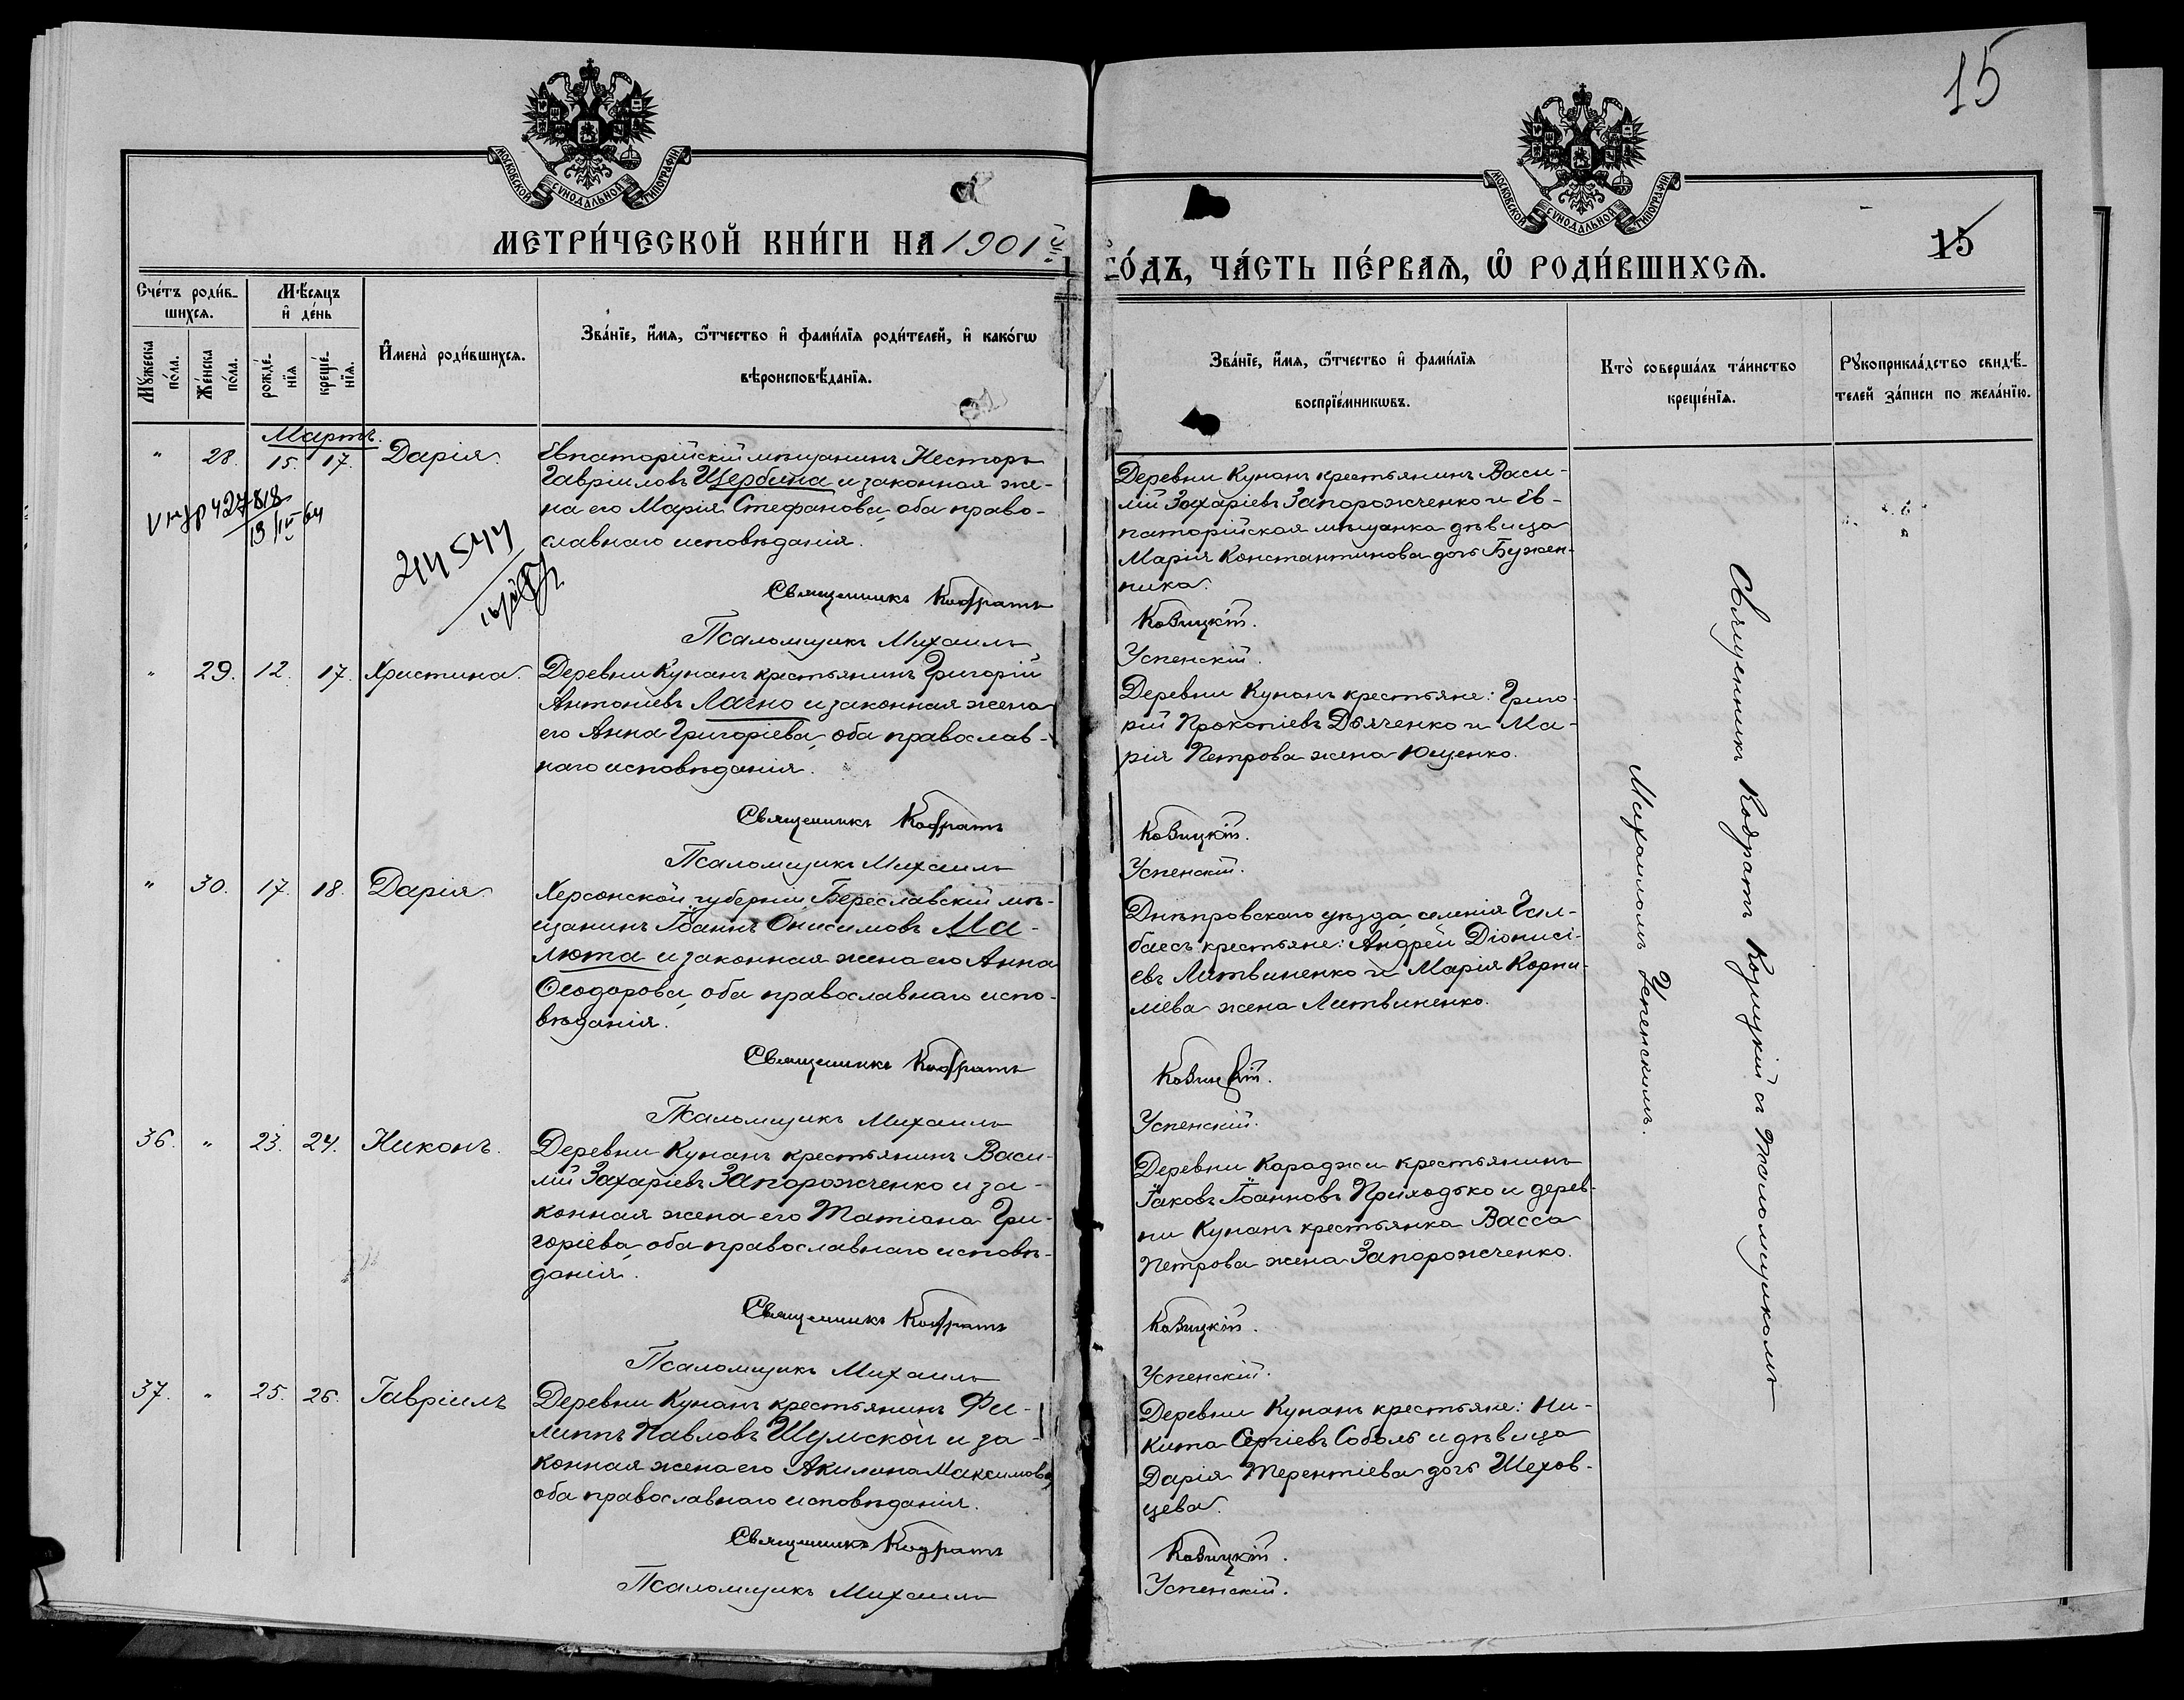 15
МОСКОВСКОЙ СУНОДАЛЬНОЙ ТИПОГРАФІИ
МОСКОВСКОЙ СУНОДАЛЬНОЙ ТИПОГРАФІИ
МЕТРИ́ЧЕСКОЙ КНИ́ГИ НА 1901й
ГО́ДЪ, ЧА́СТЬ ПЕ́РВАЯ, Ѡ РОДИ́ВШИХСЯ.
15
Сче́тъ роди́в-
шихся.
Мꙋжеска
по́ла.
Же́нска
по́ла.
Мѣ́сяцъ
и де́нь
рожде́-
нїя
креще́-
нїя.
Имена̀ роди́вшихся.
Зва́нїе, и́мя, ѻ́тчество и фами́лїя роди́телей, и како́гѡ
вѣроисповѣ́данїя.
Зва́нїе, и́мя, ѻ́тчество и фами́лїя
воспрїе́мникѡвъ.
Кто̀ соверша́лъ та́инство
креще́нїя.
Рꙋкоприкла́дство свидѣ́-
телей за́писи по жела́нїю.
Мартъ.
" 28. 15. 17. Дарія.
Евпаторійскій мѣщанинъ Несторъ
Гавріиловъ Щербина и законная же-
на его Марія Стефанова, оба право-
славнаго исповѣданія.
Священникъ Кодратъ
Псаломщикъ Михаилъ
Деревни Кунанъ крестьянинъ Васи-
лій Захаріевъ Запорожченко и Ев-
паторійская мѣщанка дѣвица
Марія Константинова дочь Бужен-
ника.
Козицкій.
Успенскій.
427818
13/IV 64
244544
" 29. 12. 17. Христина.
Деревни Кунанъ крестьянинъ Григорій
Антоніевъ Лагно и законная жена
его Анна Григоріева, оба православ-
наго исповѣданія.
Священникъ Кодратъ
Псаломщикъ Михаилъ
Деревни Кунанъ крестьяне: Григо-
рій Прокопіевъ Дьяченко и Ма-
рія Петрова жена Ющенко.
Козицкій.
Успенскій.
" 30. 17. 18. Дарія.
Херсонской губерніи Береславскій мѣ-
щанинъ Іоаннъ Онисимовъ Ма-
люта и законная жена его Анна
Ѳеодорова, оба православнаго испо-
вѣданія.
Священникъ Кодратъ
Псаломщикъ Михаилъ
Днѣпровскаго уѣзда, селенія
крестьяне: Андрей Діонисі-
евъ Литвиненко и Марія Корни-
ліева жена Литвиненко.
Козицкій.
Успенскій.
36. " 23. 24. Никонъ.
Деревни Кунанъ крестьянинъ Васи-
лій Захаріевъ Запорожченко и за-
конная жена его Татіана Гри-
горіева, оба православнаго исповѣ-
данія.
Священникъ Кодратъ
Псаломщикъ Михаилъ
Деревни Караджи крестьянинъ
Іаковъ Іоанновъ Приходько и дерев-
ни Кунанъ крестьянка Васса
Петрова жена Запорожченко.
Козицкій.
Успенскій.
37. " 25. 26. Гавріилъ
Деревни Кунанъ крестьянинъ Фи-
липпъ Павловъ Шумской и за-
конная жена его Акилина Максимова,
оба православнаго исповѣданія.
Священникъ Кодратъ
Псаломщикъ Михаилъ
Деревни Кунанъ крестьяне: Ни-
кита Сергіевъ Соболь и дѣвица
Дарія Терентіева дочь Шехов-
цева.
Козицкій.
Успенскій.
Священникъ Кодратъ Козицкій съ псаломщикомъ
Михаиломъ Успенскимъ.